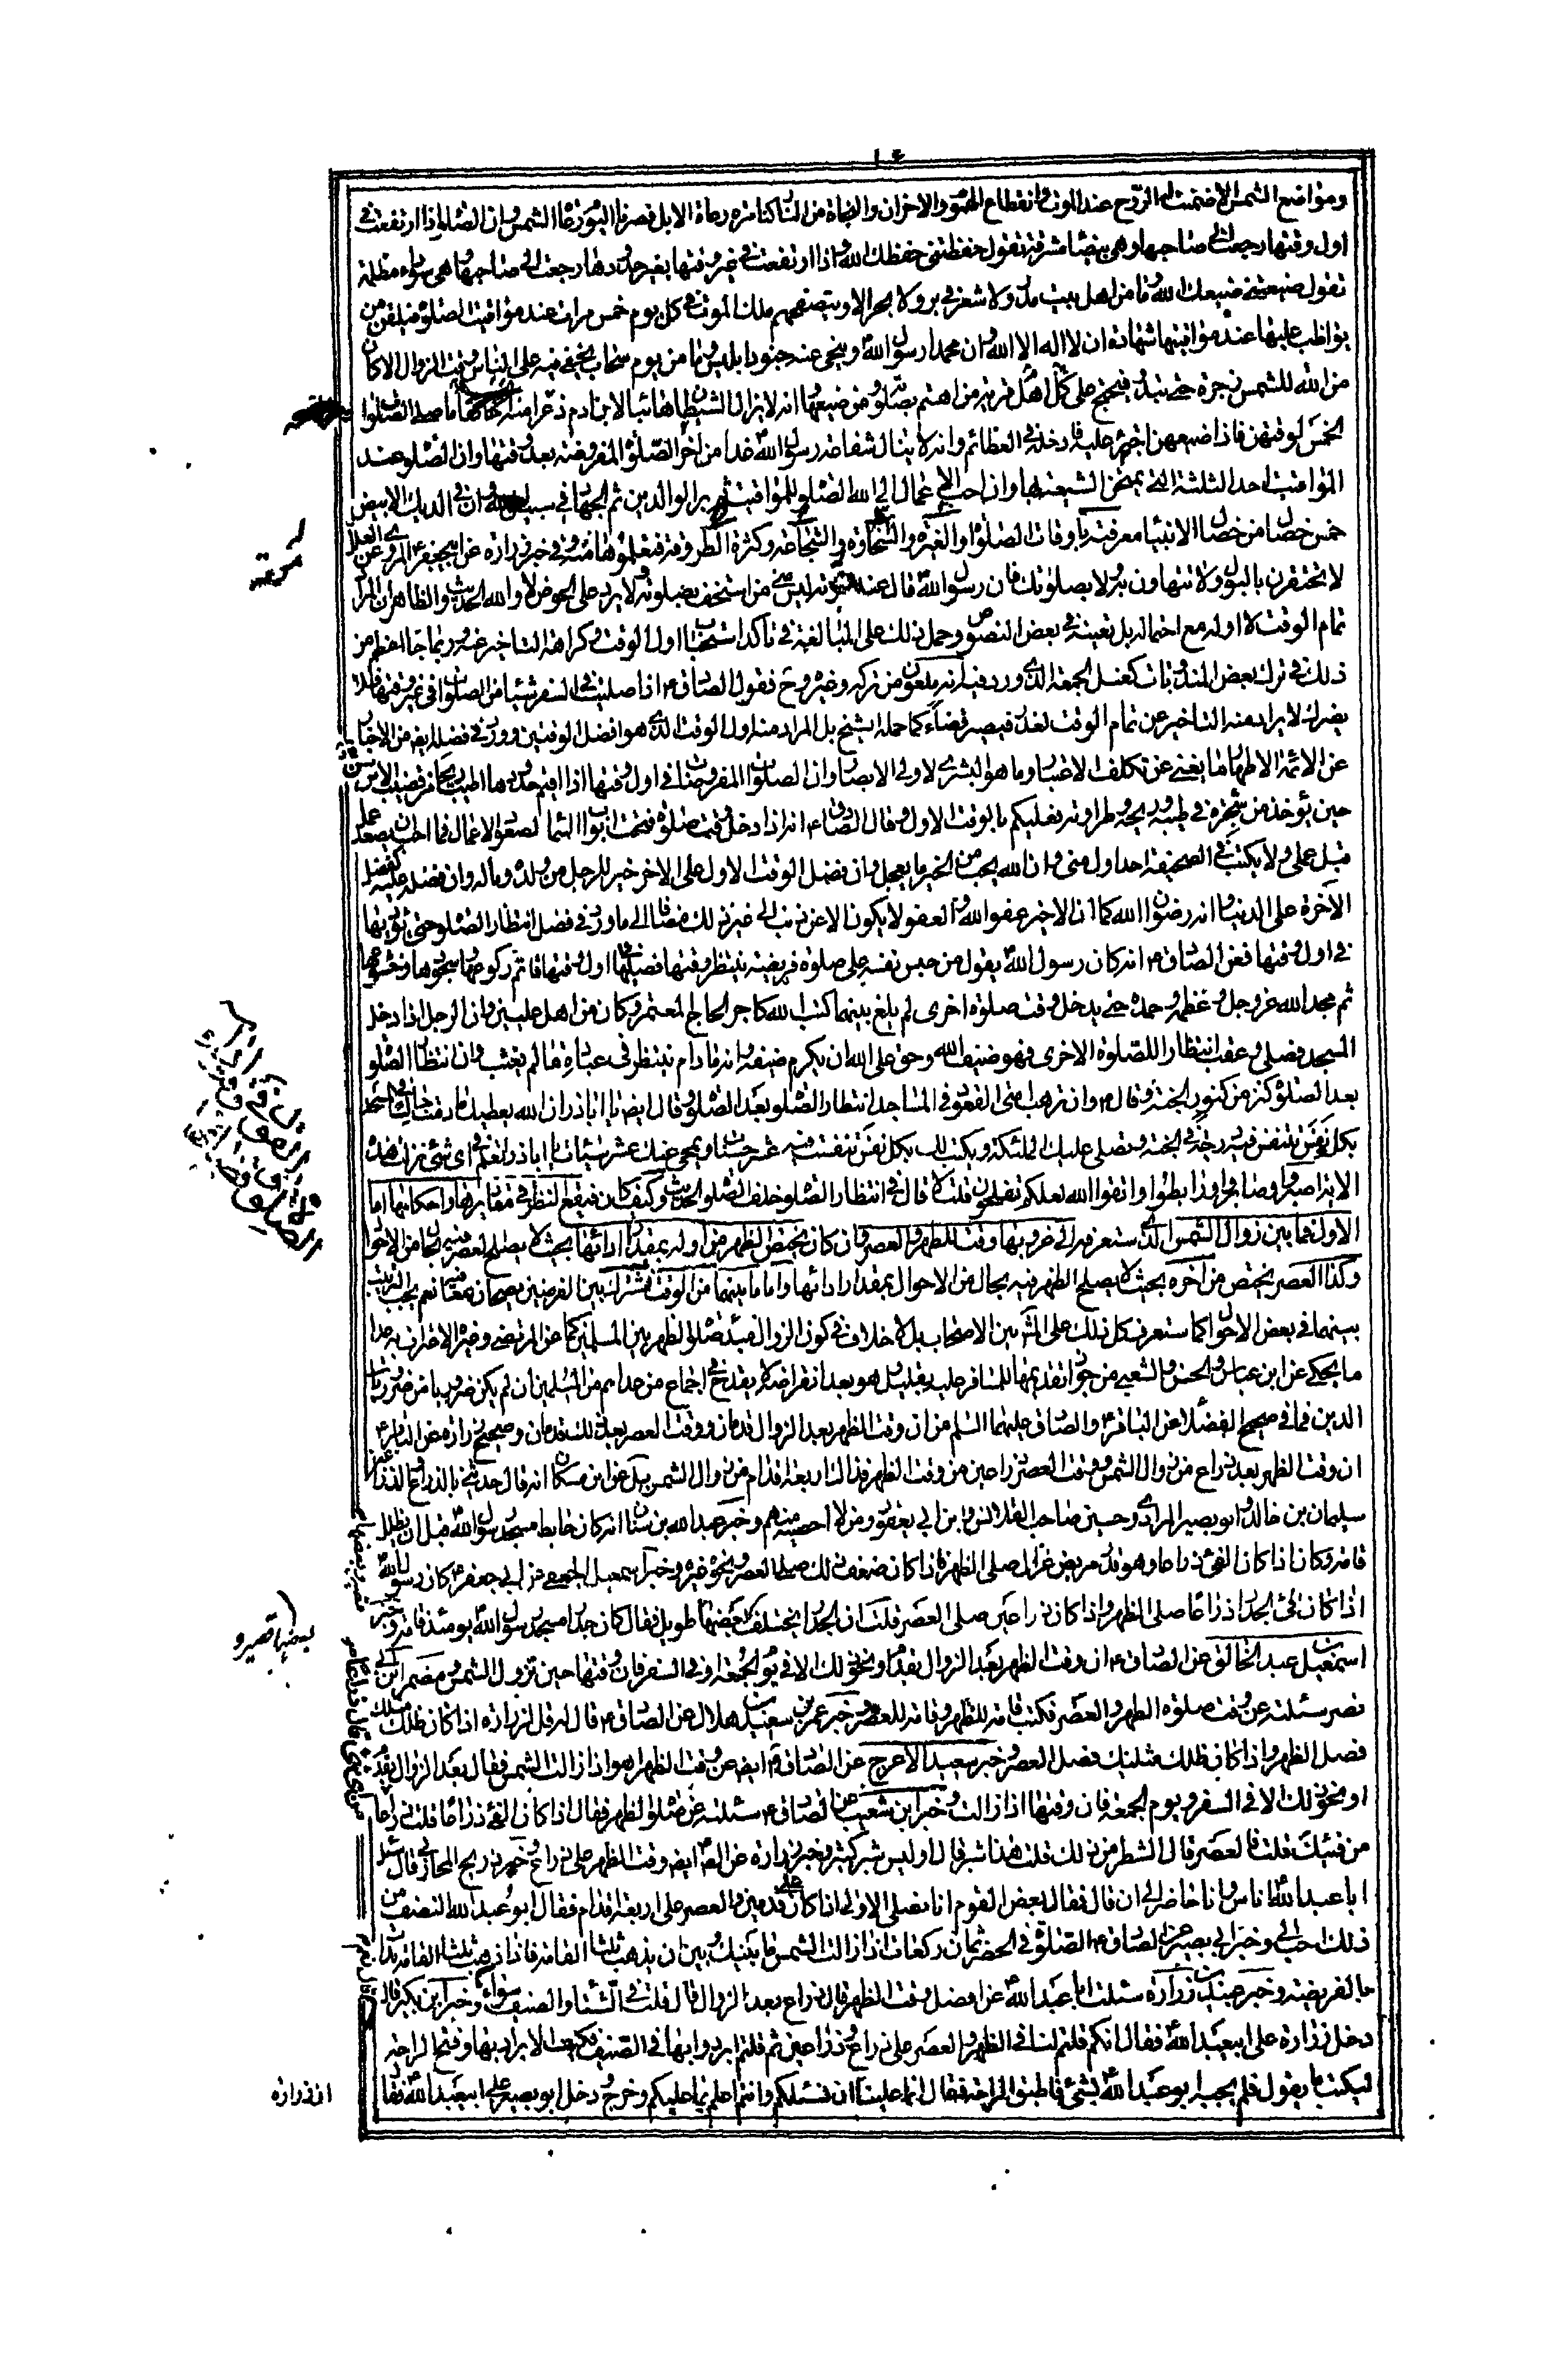 ومواضع الشمس الا ضمنت له الروح عند الموت وانقطاع الهموم والاحزان والنجاة من النار كنا مرة رعاة الابل فصرنا اليوم رعاة الشمس وان الصلوة اذا ارتفعت في
اول وقتها رجعت الى صاحبها وهي بيضاء مشرقة تقول حفظتني حفظك الله واذا ارتفعت في غير وقتها بغير حدودها رجعت الى صاحبها وهي سوداء مظلمة
تقول ضيعتني ضيعك الله وما من اهل بيت مدر ولا شعر في بر ولا بحر الا ويتصفحهم ملك الموت في كل يوم خمس مرات عند مواقيت الصلوة فيلقن من
يواظب عليها عند مواقيتها شهادة ان لا اله الا الله وان محمدا رسول الله وينحي عنه جنود ابليس وما من يوم سحاب يخفى فيه على الناس وقت الزوال الا كان
من الله للشمس زجرة حتى تبدو فيحتج على كل اهل قرية من اهتم بصلوته ومن ضيعها وانه لا يزال الشيطان هائبا لابن ادم ذعرا منه ما صلى الصلوات
الخمس لوقتهن فاذا ضيعهن اجترء عليه فادخله في العظائم وانه لا ينال شفاعة رسول الله غدا من اخر الصلوة المفروضة بعد وقتها وان الصلوة عند
المواقيت احد الثلثة التي يمتحن الشيعة بها وان احب الاعمال الى الله الصلوة للمواقيت ثم بر الوالدين ثم الجهاد في سبيل الله وان في الديك الابيض
خمس خصال من خصال الانبياء معرفته باوقات الصلوة والغيرة والسخاوة والشجاعة وكثرة الطروقة فتعلموها منه وفي خبر زرارة عن ابي جعفر المروي عن العلل
لا تحتقرن بالبول ولا تتهاون به ولا بصلوتك فان رسول الله قال عند موته ليس مني من استخف بصلوته لا يرد علي الحوض لا والله الحديث والظاهر ان المراد
تمام الوقت لا اوله مع احتماله بل تعينه في بعض النصوص وحمل ذلك على المبالغة في تاكد استحباب اول الوقت وكراهة التاخير عنه وربما جاء اعظم من
ذلك في ترك بعض المندوبات كغسل الجمعة الذي ورد فيه انه ملعون من تركه وغيره وح فقول الصادق اذا صليت في السفر شيئا من الصلوات في غير وقتها فلا
يضرك لا يراد منه التاخير عن تمام الوقت لعذر فيصير قضاء كما حمله الشيخ بل المراد منه اول الوقت الذي هو افضل الوقتين وورد في فضله ايضا من الاخبار
عن الائمة الاطهار ما يغني عن تكلف الاعتبار وما هو البشرى لاولي الابصار وان الصلوات المفروضات في اول وقتها اذا اقيم حدودها اطيب ريحا من قضيب الاس
حين يؤخذ من شجره في طيبه وريحه وطراوته فعليكم بالوقت الاول وقال الصادق انه اذا دخل وقت صلوة فتحت ابواب السماء لصعود الاعمال فما احب ان يصعد عمل
قبل عملي ولا يكتب في الصحيفة احد اول مني وان الله يحب من الخير ما يعجل وان فضل الوقت الاول على الاخر خير للرجل من ولده وماله وان فضله عليه كفضل
الاخرة على الدنيا وانه رضوان الله كما ان الاخير عفو الله والعفو لا يكون الا عن ذنب الى غير ذلك مضافا الى ما ورد في فضل انتظار الصلوة حتى يؤتى بها
في اول وقتها فعن الصادق انه كان رسول الله يقول من حبس نفسه على صلوة فريضة ينتظر وقتها فصلاها في اول وقتها فاتم ركوعها وسجودها وخشوعها
ثم مجد الله عز وجل وعظمه وحمده حتى يدخل وقت صلوة اخرى لم يلغ بينهما كتب الله كاجر الحاج المعتمر وكان من اهل عليين وان الرجل اذا دخل
المسجد فصلى وعقب انتظارا للصلوة الاخرى فهو ضيف الله وحق على الله ان يكرم ضيفه وانه ما دام ينتظر في عبادة ما لم يغتب وان انتظار الصلوة
بعد الصلوة كنز من كنوز الجنة وقال وان ترهب امتي القعود في المساجد انتظار الصلوة بعد الصلوة وقال ايضا يا اباذر ان الله يعطيك ما دمت جالسا في المسجد
بكل نفس تتنفس فيه درجة في الجنة وتصلي عليك الملئكة ويكتب لك بكل نفس تنفست فيه عشر حسنات ويمحى عنك عشر سيئات يا اباذر اتعلم في اي شيء نزلت هذه
الاية اصبروا وصابروا ورابطوا واتقوا الله لعلكم تفلحون قلت لا قال في انتظار الصلوة خلف الصلوة الحديث وكيف كان فيقع النظر في مقاديرها واحكامها اما
الاول فما بين زوال الشمس الذي ستعرفه الى غروبها وقت للظهر والعصر وان كان يختص الظهر من اوله بمقدار ادائها بحيث لا يصلح العصر فيه بحال من الاحوال
وكذا العصر يختص من اخره بحيث لا يصلح الظهر فيه بحال من الاحوال بمقدار ادائها واما ما بينهما من الوقت مشترك بين الفرضين يصحان فيه معا نعم يجب الترتيب
بينهما في بعض الاحوال كما ستعرف كل ذلك على المشهور بين الاصحاب بلا خلاف في كون الزوال مبدء صلوة الظهر بين المسلمين كما عن المرتضى وغيره الاعتراف به عدا
ما يحكى عن ابن عباس والحسن والشعبي من جواز تقديمها للمسافر عليه بقليل وهو بعد انقراضه لا يقدح في اجماع من عداهم من المسلمين ان لم يكن ضروريا من ضروريات
الدين فما في صحيح الفضلاء عن الباقر والصادق عليهما السلم من ان وقت الظهر بعد الزوال قدمان ووقت العصر بعد ذلك قدمان وصحيح زرارة عن الباقر
ان وقت الظهر بعد ذراع من زوال الشمس ووقت العصر ذراعين من وقت الظهر فذاك اربعة اقدام من زوال الشمس بل عن ابن مسكان انه قال حدثني بالذراع والذراعين
سليمان بن خالد وابو بصير المرادي وحسين صاحب القلانس وابن ابي يعفور ومن لا احصيه منهم وخبر عبد الله بن سنان انه كان حايط مسجد رسول الله قبل ان يظلل
قامة وكان اذا كان الفيء ذراعا وهو قدر مربض غزال صلى الظهر فاذا كان ضعف ذلك صلى العصر ونحوه غيره وخبر اسمعيل الجعفي عن ابي جعفر كان رسول الله
اذا كان فيء الجدار ذراعا صلى الظهر واذا كان ذراعين صلى العصر قلت ان الجدار يختلف بعضها طويل فقال كان جدار مسجد رسول الله يومئذ قامة وخبر
اسمعيل بن عبد الخالق عن الصادق ان وقت الظهر بعد الزوال بقدم او نحو ذلك الا في يوم الجمعة او في السفر فان وقتها حين تزول الشمس ومضمر ابن ابي
نصر سئلته عن وقت صلوة الظهر والعصر فكتب قامة للظهر وقامة للعصر وخبر عمر بن سعيد بن هلال عن الصادق قال له قل لزرارة اذا كان ظلك مثلك
فصل الظهر واذا كان ظلك مثليك فصل العصر وخبر سعيد الاعرج عن الصادق ايضا عن وقت الظهر اهو اذا زالت الشمس فقال بعد الزوال بقدم
او نحو ذلك الا في السفر ويوم الجمعة فان وقتها اذا زالت وخبر ابن شعيب عن الصادق سئلته عن صلوة الظهر فقال اذا كان الفيء ذراعا قلت ذراعا
من فيئك قلت فالعصر قال الشطر من ذلك قلت هذا شبر قال اوليس شبر كثير وخبر زرارة عن الصادق ايضا وقت الظهر على ذراع وخبر ذريح المحاربي قال سئل
ابا عبد الله اناس وانا حاضر الى ان قال فقال بعض القوم انا نصلي الاولى اذا كان على قدمين والعصر على اربعة اقدام فقال ابو عبد الله النصف من
ذلك احب الي وخبر ابي بصير عن الصادق الصلوة في الحضر ثمان ركعات اذا زالت الشمس ما بينك وبين ان يذهب ثلثا القامة فاذا ذهب ثلثا القامة بدات
بالفريضة وخبر عبيد بن زرارة سئلت ابا عبد الله عن افضل وقت الظهر قال ذراع بعد الزوال قال قلت في الشتاء والصيف سواء وخبر ابن بكير قال
دخل زرارة على ابيعبد الله فقال انكم قلتم لنا في الظهر والعصر على ذراع وذراعين ثم قلتم ابردوا بها في الصيف فكيف الابراد بها وفتح الواحه
ليكتب ما يقول فلم يجبه ابو عبد الله بشيء فاطبق الواحه فقال انما علينا ان نسئلكم وانتم اعلم بما عليكم وخرج ودخل ابو بصير على ابيعبد الله فقال
ان زرارة